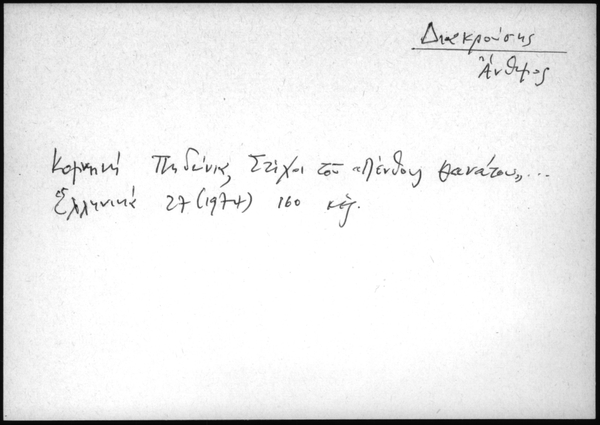 Διακρούσης
Ἄνθιμος
Κομνηνή Πηδώνια, Στίχοι τοῦ «Πένθους θανάτου»...
Ἑλληνικά 27 (1974) 160 κἑξ.